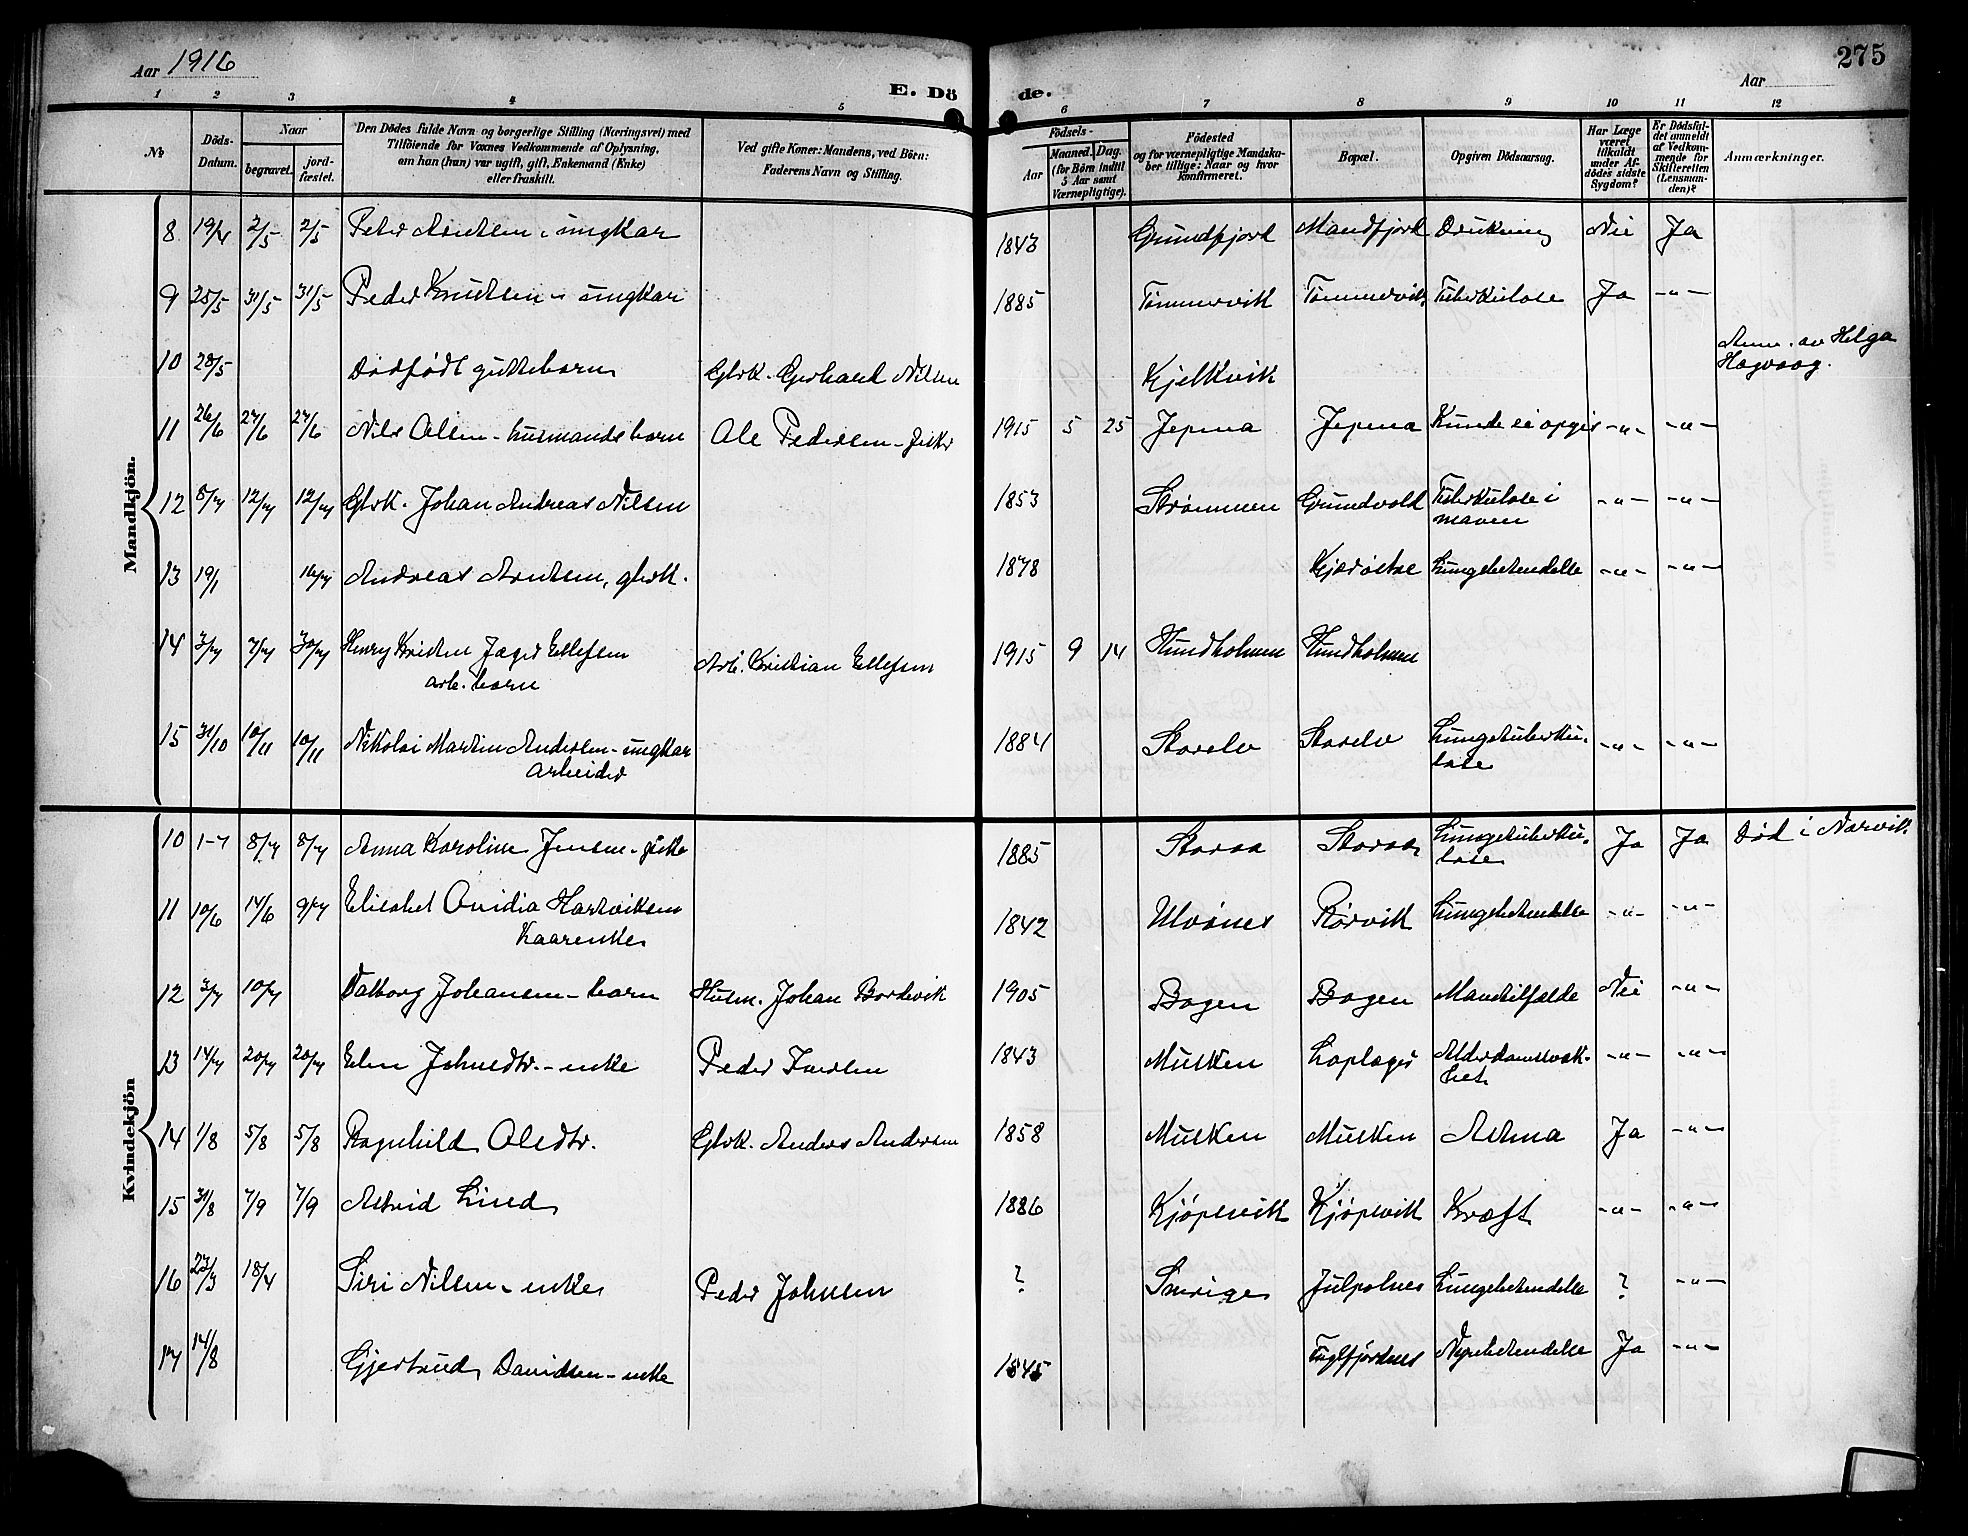 Aar 1916
E. Dö
de.
Aar
275
1 2 3 4 5 6 7 8 9 10 11 12
No
Döds-
Datum.
Naar
begravet.
jord-
fæstet.
Den Dödes fulde Navn og borgerlige Stilling (Næringsvei) med
Tilföiende for Voxnes Vedkommende af Oplysning,
om han (hun) var ugift, gift, Enkemand (Enke)
eller fraskilt.
Ved gifte Koner: Mandens, ved Börn:
Faderens Navn og Stilling.
Födsels-
Aar
Maaned. Dag.
(for Börn indtil
5 Aar samt
Værnepligtige).
Födested
og for værnepligtige Mandska-
ber tillige: Naar og hvor
konfirmeret.
Bopæl.
Opgiven Dödsaarsag.
Har Læge
været
tilkaldt
under Af-
dödes sidste
Sygdom?
Er Dödsfal-
det anmeldt
af Vedkom-
mende for
Skifteretten
(Lensman-
den)?
Anmærkninger.
Mandkjön.
8 19/4 2/5 2/5 Peter Arntsen, ungkar 1843 Grundfjord Mandfjord Drukning Nei Ja
9 25/5 31/5 31/5 Peder Knutsen - ungkar 1885 Tømmervik Tømmervik Tuberkulose Ja -"-
10 28/5 Dødfødt guttebarn Gbrk. Gerhard Nilsen Kjelkvik Anm. av Helga
Hagvaag.
11 26/6 27/6 27/6 Nils Olsen - husmandsbarn Ole Pedersen - fisker 1915 5 25 Jepma Jepma Kunde ei opgis -"- -"-
12 8/7 12/7 12/7 Gbrk. Johan Andreas Nilsen 1853 Strømmen Grundvold Tuberkulose i
maven -"- -"-
13 19/1 16/7 Andreas Arntsen, gbrk. 1878 Lungebetendelse -"- -"-
14 3/7 7/7 30/7 Henry Kristen Jæger Ellefsen
arb. barn Arb. Kristian Ellefsen 1915 9 14 Hundholmen Hundholmen
15 31/10 10/11 10/11 Nikolai Martin Andersen - ungkar
arbeider 1884 Storelv Storelv Lungetuberku-
lose -"- -"-
Kvindekjön
10 1-7 8/7 8/7 Anna Karoline Jensen - pike 1885 Storaa Storaa Lungetuberku-
lose Ja Ja Død i Narvik
11 10/6 14/6 9/7 Elisabet Ovidia Hartviksen
kaarenke 1842 Ulvönes Rørvik Lungebetendelse -"- -"-
12 3/7 10/7 Valborg Johansen - barn Husm. Johan Bordevik 1905 Bogen Bogen Mavetilfælde Nei -"-
13 14/7 20/7 20/7 Elen Johnsdtr. - enke Peder Iversen 1843 Musken Loplager Alderdomssvak-
het -"- -"-
14 1/8 5/8 5/8 Ragnhild Olsdtr. Gbrk. Anders Andersen 1858 Musken Musken Astma Ja -"-
15 31/8 7/9 7/9 Astrid Lind 1886 Kjöpsvik Kjöpsvik Kræft -"- -"-
16 27/3 18/4 Siri Nilsen - enke Peder Johnsen ? Sverige Lungebetendelse ? -"-
17 14/8 Gjertrud Davidsen - enke 1845 Nyrebetendelse Ja -"-